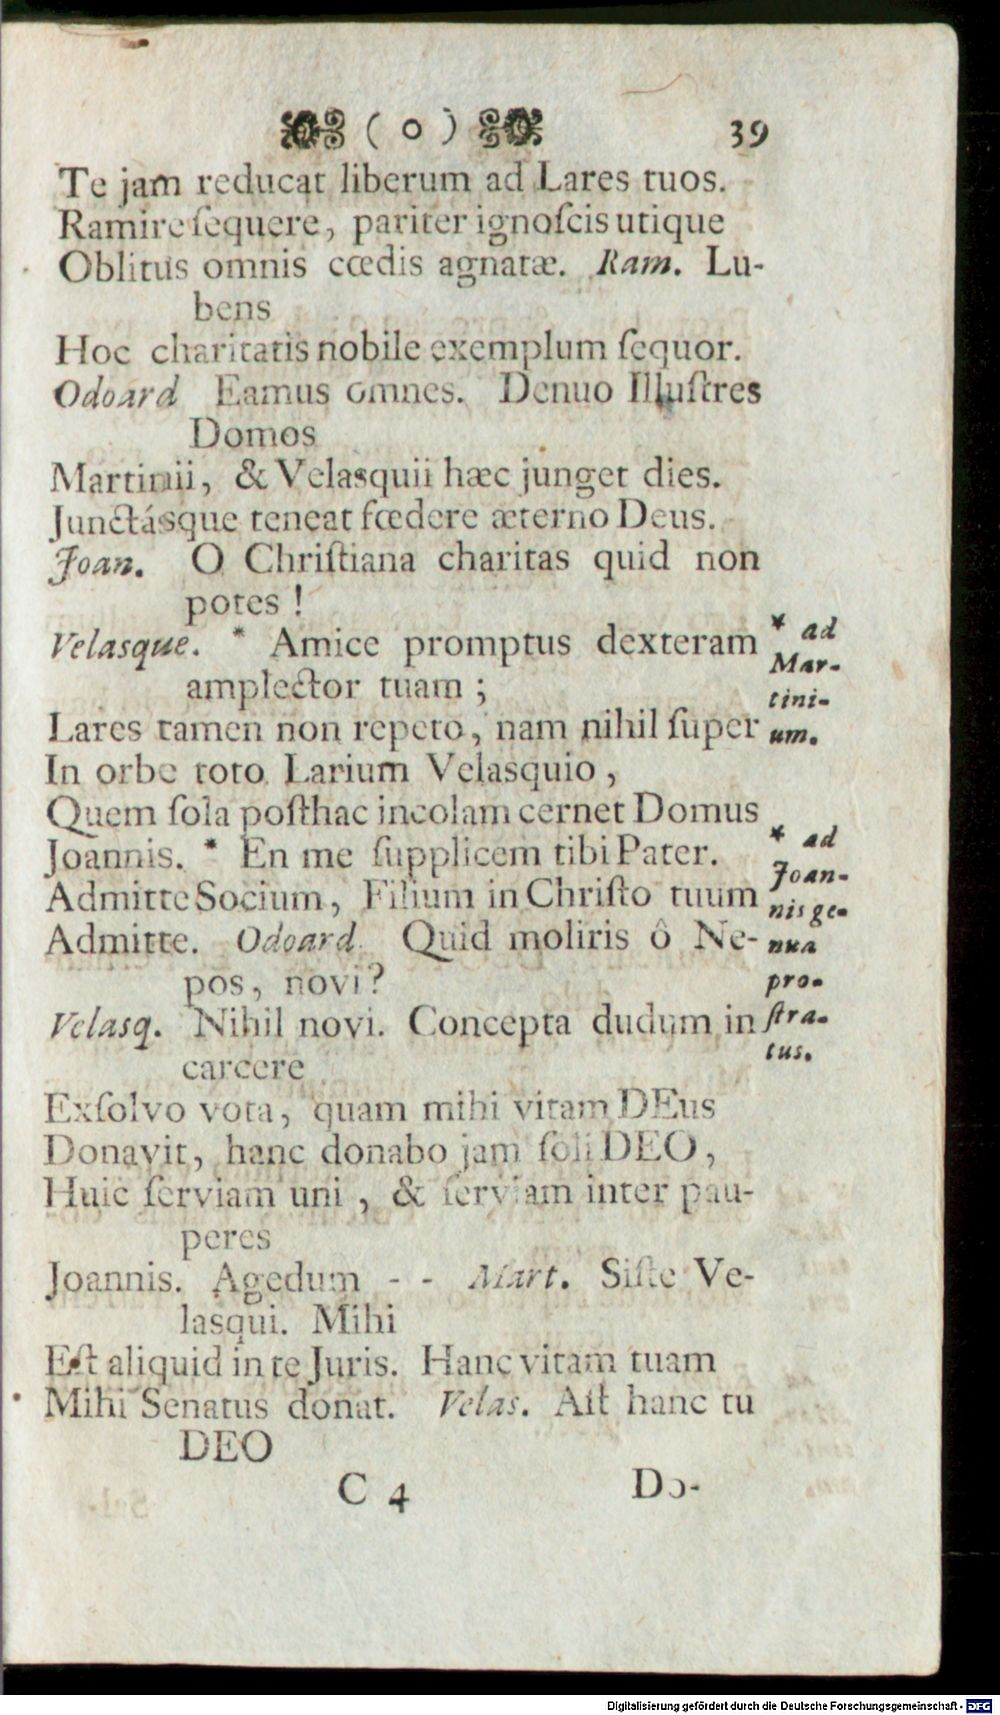 ( o ) 39
Te jam reducat liberum ad Lares tuos.
Ramire ſequere, pariter ignoſcis utique
Oblitus omnis cœdis agnatæ. Ram. Lu-
bens
Hoc charitatis nobile exemplum ſequor.
Odoard Eamus omnes. Denuo Illuſtres
Domos
Martinii, & Velasquii hæc junget dies.
Junctásque teneat fœdere æterno Deus.
Joan. O Chriſtiana charitas quid non
potes !
Velasque. * Amice promptus dexteram
amplector tuam ;
Lares tamen non repeto, nam nihil ſuper
In orbe toto Larium Velasquio ,
Quem ſola poſthac incolam cernet Domus
Joannis. * En me ſupplicem tibi Pater.
Admitte Socium, Filium in Chriſto tuum
Admitte. Odoard. Quid moliris ô Ne-
pos, novi?
Velasq. Nihil novi. Concepta dudum in
carcere
Exſolvo vota, quam mihi vitam DEus
Donavit, hanc donabo jam ſoli DEO ,
Huic ſerviam uni , & ſerviam inter pau-
peres
Joannis. Agedum - - Mart. Siſte Ve-
lasqui. Mihi
Eſt aliquid in te Juris. Hanc vitam tuam
Mihi Senatus donat. Velas. Aſt hanc tu
DEO
C 4 Do-
* ad
Mar-
tini-
um.
* ad
Joan-
nis ge-
nua
pro-
ſtra-
tus.
Digitalisierung gefördert durch die Deutsche Forschungsgemeinschaft - DFG